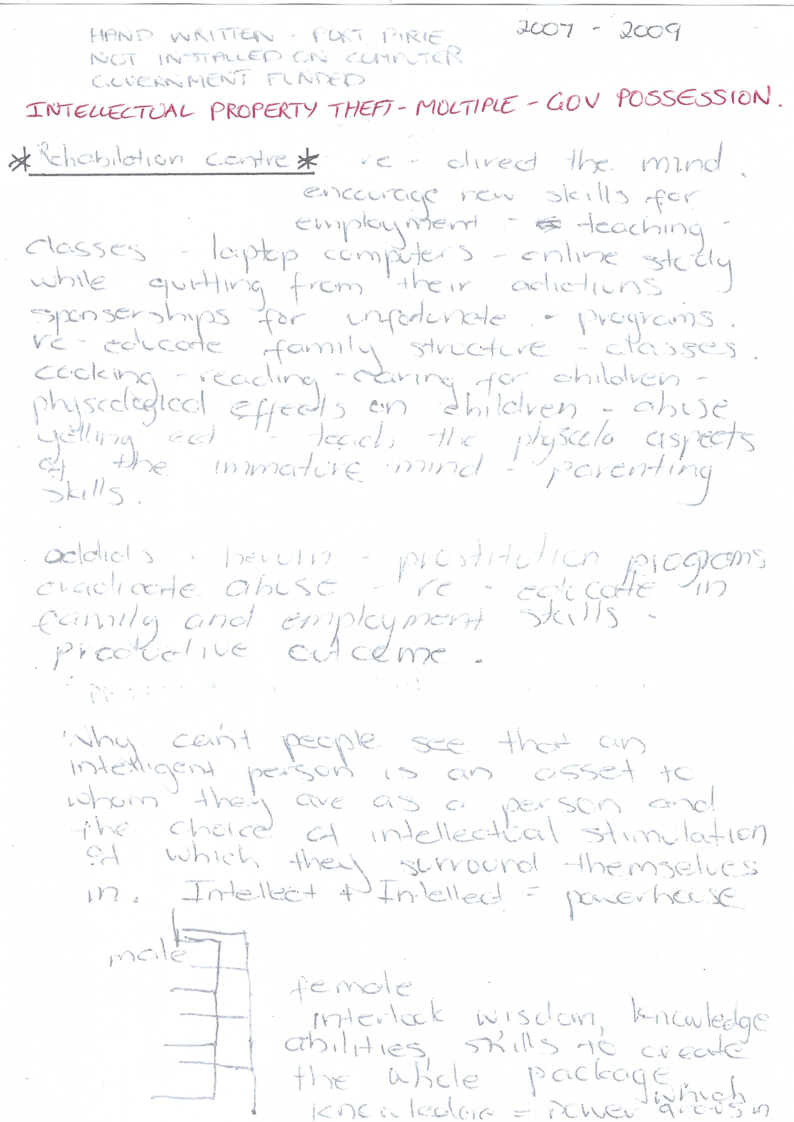 HAND WRITTEN - PORT PIRIE 2007 - 2009
NOT INSTALLED ON COMPUTER
GOVERNMENT FUNDED
INTELLECTUAL PROPERTY THEFT - MULTIPLE - GOV POSSESSION.
*Rehabilation centre* re - direct the mind.
encourage new skills for
employment - teaching -
classes - laptop computers - online study
while quitting from their adictions
sponserships for unfortunate - programs.
re-educate family structure - classes.
cooking - reading - caring for children -
physcological effects on children - abuse
yelling ect - teach the physcolo aspects
of the immature mind - parenting
skills.
addicts - heroin - prostitution programs
eradicate abuse - re-educate in
family and employment skills -
productive outcome.
Why can't people see that an
intelligent person is an asset to
whom they are as a person and
the choice of intellectual stimulation
of which they surround themselves
in. Intellect + Intellect = powerhouse
male
female
interlock wisdom, knowledge
abilities, skills to create
the whole package
which
knowledge = power